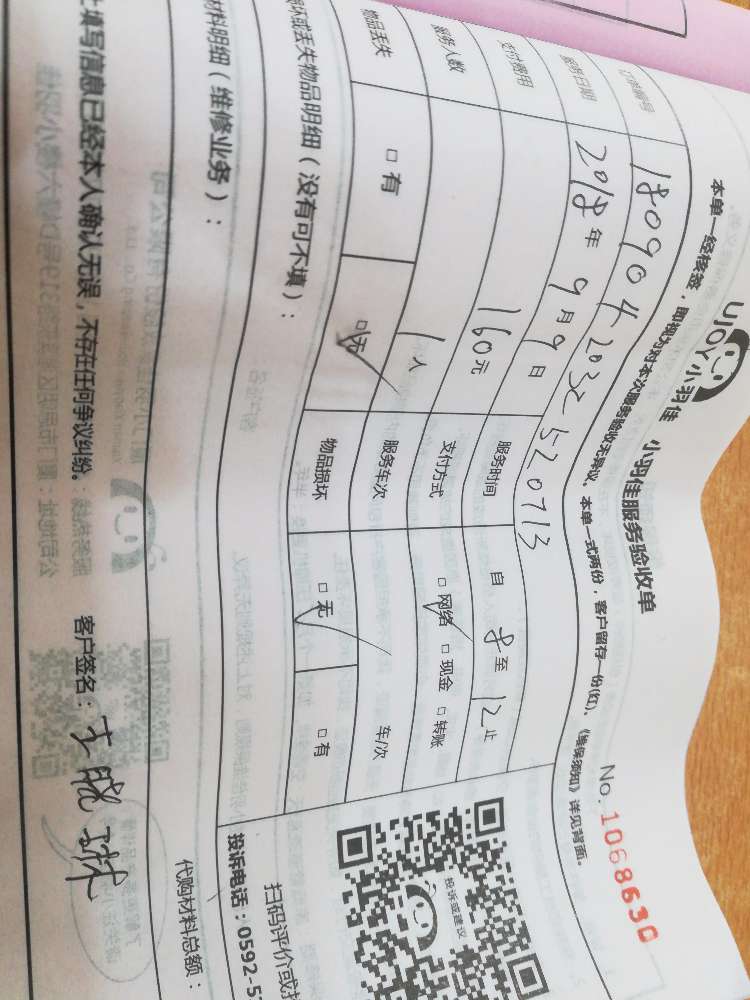 UJOY小羽佳 小羽佳服务验收单
No. 1068630
本单一经接签，即视为对本次服务验收无异议。本单一式两份，客户留存一份(红)，《维保须知》详见背面。
订单编号 1809042032520713
服务日期 2018年9月9日 服务时间 自8至12止
支付费用 160元 支付方式 □网络 □现金 □转账
服务人数 1人 服务车次 车/次
物品丢失 □有 □无 物品损坏 □无 □有
损坏或丢失物品明细（没有可不填）：
材料明细（维修业务）：
代购材料总额：
投诉或建议
扫码评价或
投诉电话：0592-5
上填写信息已经本人确认无误，不存在任何争议纠纷。
客户签名：